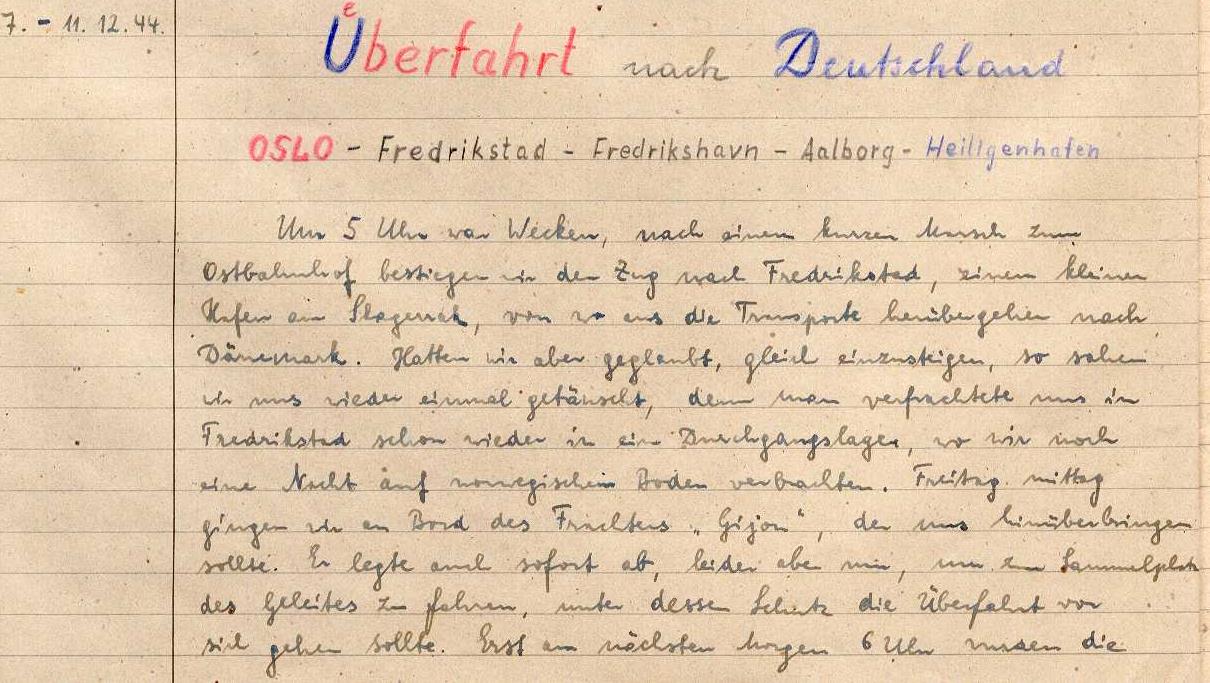 7. - 11. 12. 44.
Überfahrt nach Deutschland
OSLO - Fredrikstad - Fredrikshavn - Aalborg - Heiligenhafen
Um 5 Uhr war Wecken, nach einem kurzen Marsch zum
Ostbahnhof bestiegen wir den Zug nach Fredrikstad, einem kleinen
Hafen am Skagerrak, von wo aus die Transporte herübergehen nach
Dänemark. Hatten wir aber geglaubt, gleich einzusteigen, so sahen
wir uns wieder einmal getäuscht, denn man verfrachtete uns in
Fredrikstad schon wieder in ein Durchgangslager, wo wir noch
eine Nacht auf norwegischem Boden verbrachten. Freitag mittag
gingen wir an Bord des Frachters „Gijon“, der uns hinüberbringen
sollte. Er legte auch sofort ab, leider aber nur, um zum Sammelplatz
des Geleites zu fahren, unter dessen Schutz die Überfahrt vor
sich gehen sollte. Erst am nächsten Morgen 6 Uhr waren die